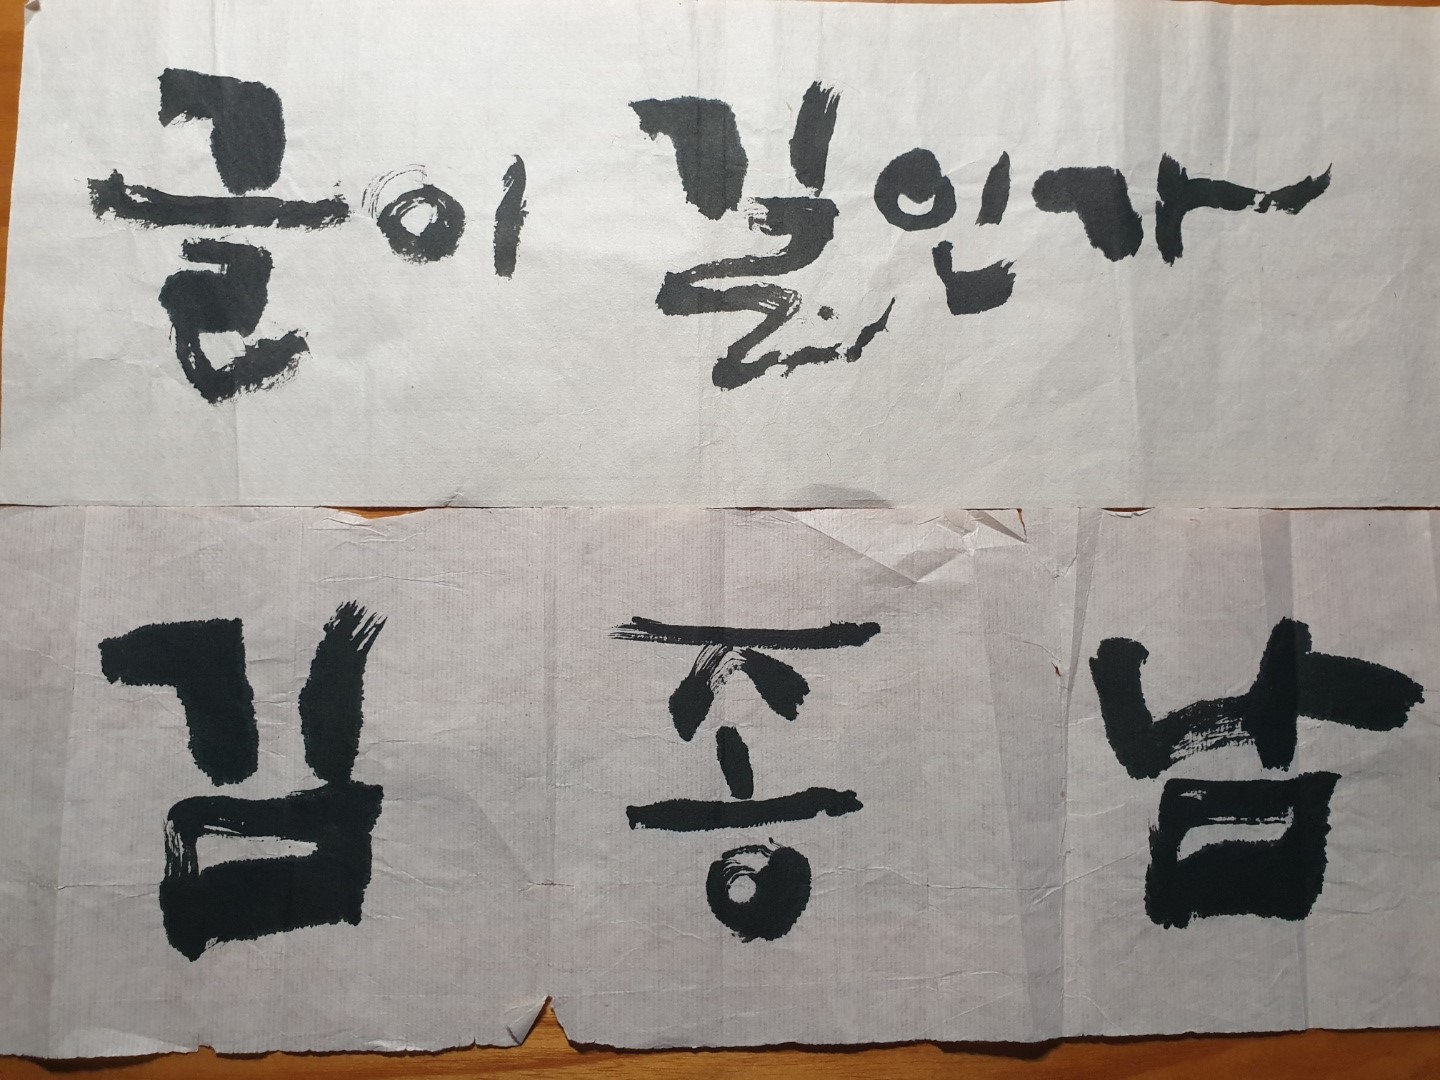 글이 길인가
김종남